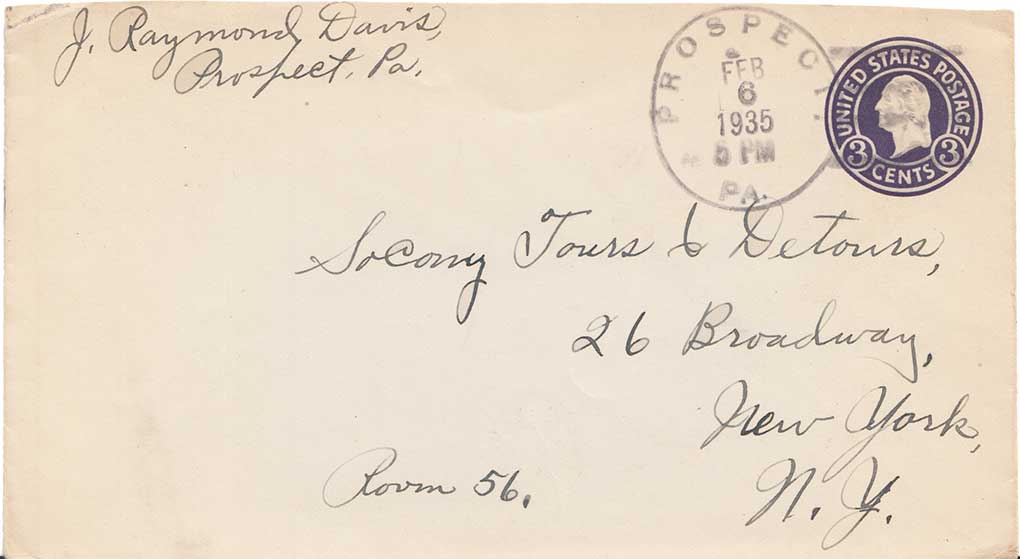 J. Raymond Davis,
Prospect, Pa.
PROSPECT,
FEB
6
1935
5 PM
PA.
UNITED STATES POSTAGE
3 CENTS 3
Socony Tours & Detours,
26 Broadway,
New York,
N. Y.
Room 56.